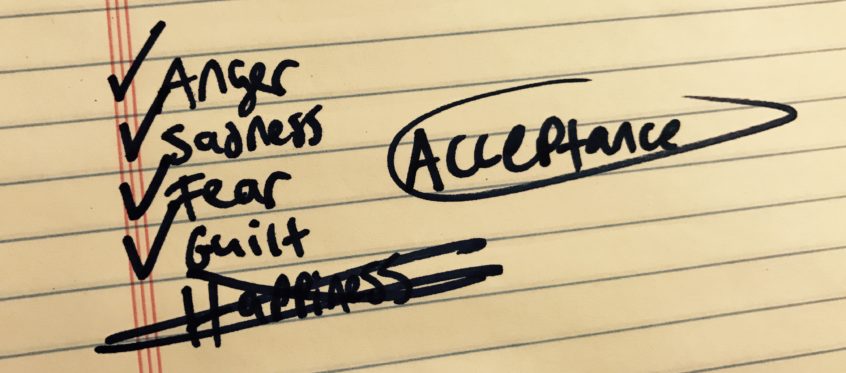 Anger
Sadness
Fear
Guilt
Happiness
Acceptance